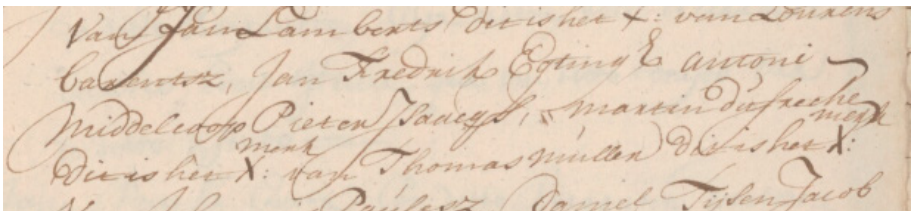 Van Jan Lamberts dit is het X: van Lourens
barentsz, Jan Fredrik Egtingh antoni
Middelcoop Pieter Isaacqs, Martin dufreche
merk
dit is het X: van Thomas muller dit is het X:
merk
Paulesz Daniel Tijsen Jacob